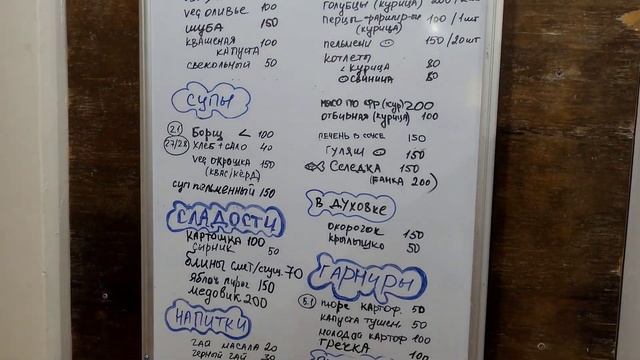 veg оливье 100
шуба 150
квашеная 100
капуста
свекольный 50
Супы
2.1 Борщ 100
27/28 хлеб + сало 40
veg окрошка 150
(квас/кефир)
суп пельменный 150
Сладости
картошка 100
сырник 50
блины смет/сгущ. 70
яблоч пирог 150
медовик 200
Напитки
чай масала 20
черный чай 30
голубцы (курица)
перцы фаршир-ые 100 / 1шт
(курица)
пельмени 150 / 20шт
котлеты
курица 80
свинина 80
мясо по фр (кур) 200
отбивная (курица) 100
печень в соусе 150
Гуляш 150
Селедка 150
(банка 200)
в духовке
окорочок 150
крылышко 50
Гарниры
5.1 пюре картоф. 50
капуста тушен. 50
молодой картоф 100
гречка 100